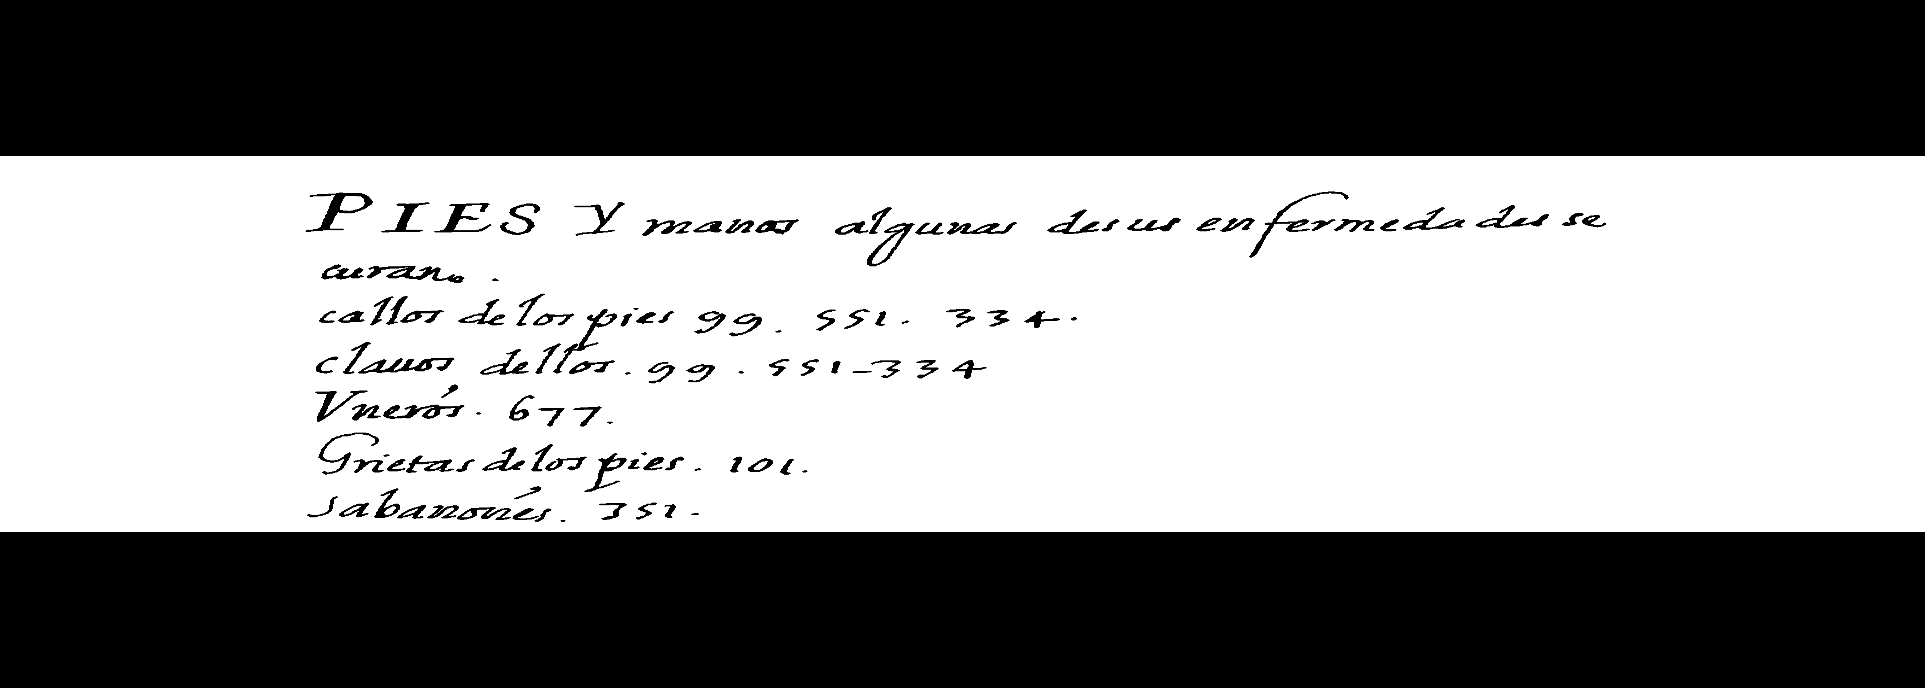 PIES Y manos algunas desus enfermedades se
curan.
callos delos pies 99. 551. 334.
clauos dellos. 99. 551-334
Vnerós. 677.
Grietas delos pies. 101.
sabanonés. 351.